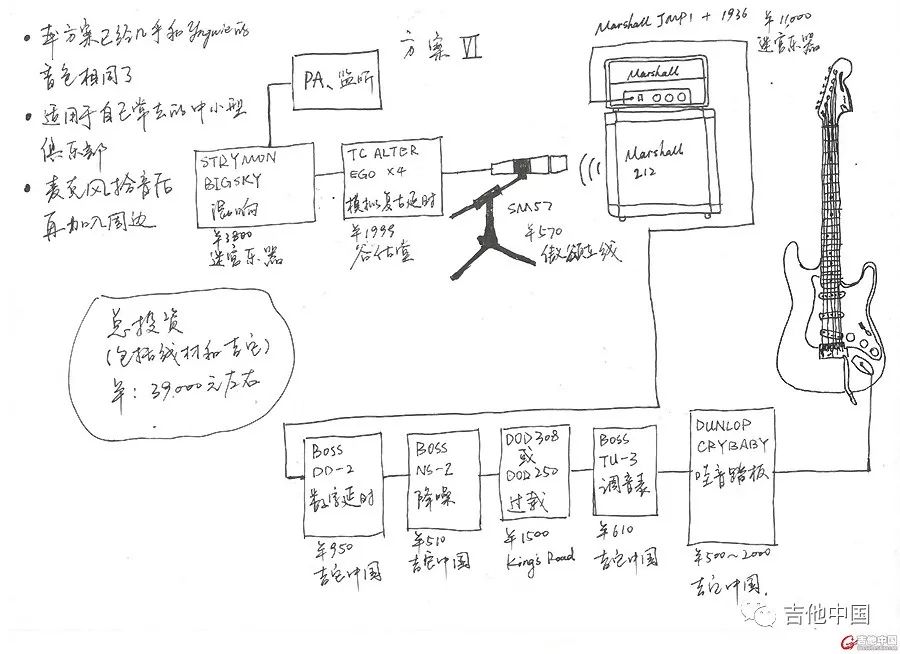 • 本方案已经几乎和Yngwie的
音色相同了
• 适用于自己常去的中小型
俱乐部
• 麦克风拾音后
再加入周边
方案 VI
PA、监听
STRYMON
BIGSKY
混响
¥3800
迷宫乐器
TC ALTER
EGO X4
模拟复古延时
¥1999
谷估堂
SM57
¥570
傲领在线
Marshall JMP1 + 1936
¥11,000
迷宫乐器
Marshall
Marshall
212
总投资
(包括线材和吉它)
羊: 39,000元左右
BOSS
DD-2
数字延时
¥950
吉它中国
BOSS
NS-2
降噪
¥510
吉它中国
DOD308
或
DOD250
过载
¥1500
King's Road
BOSS
TU-3
调音表
¥610
吉它中国
DUNLOP
CRYBABY
哇音踏板
¥500~2000
吉它中国.
吉他中国
吉他中国